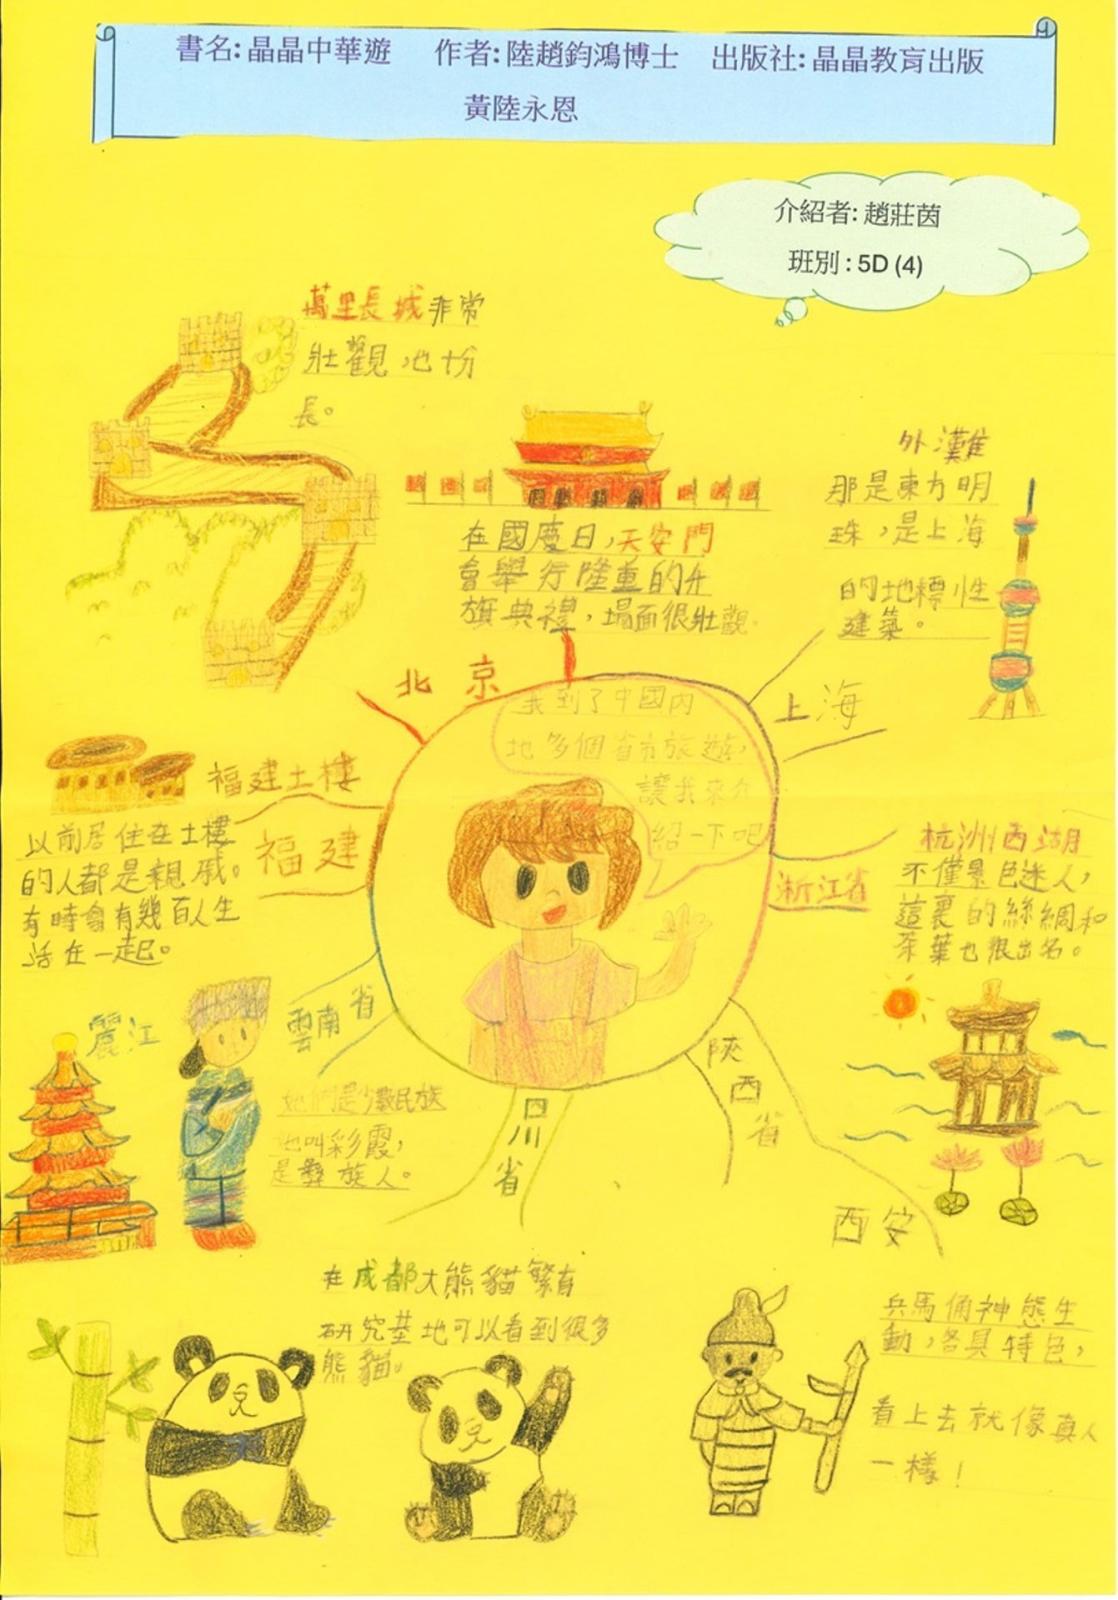 書名: 晶晶中華遊　作者: 陸趙鈞鴻博士　出版社: 晶晶教育出版
黃陸永恩
介紹者: 趙莊茵
班別 : 5D (4)
萬里長城非常
壯觀,也十分
長。
在國慶日,天安門
會舉行隆重的升
旗典禮,場面很壯觀。
外灘
那是東方明
珠,是上海
的地標性
建築。
北京
上海
我到了中國內
地多個省市旅遊,
讓我來介
紹一下吧
福建土樓
福建
以前居住在土樓
的人都是親戚。
有時會有幾百人生
活在一起。
浙江省
杭洲西湖
不僅景色迷人,
這裏的絲綢和
茶葉也很出名。
雲南省
麗江
她們是少數民族
她叫彩霞,
是彝族人。
四川省
陝西省
西安
在成都大熊貓繁育
研究基地可以看到很多
熊貓。
兵馬俑神態生
動,各具特色,
看上去就像真人
一樣!